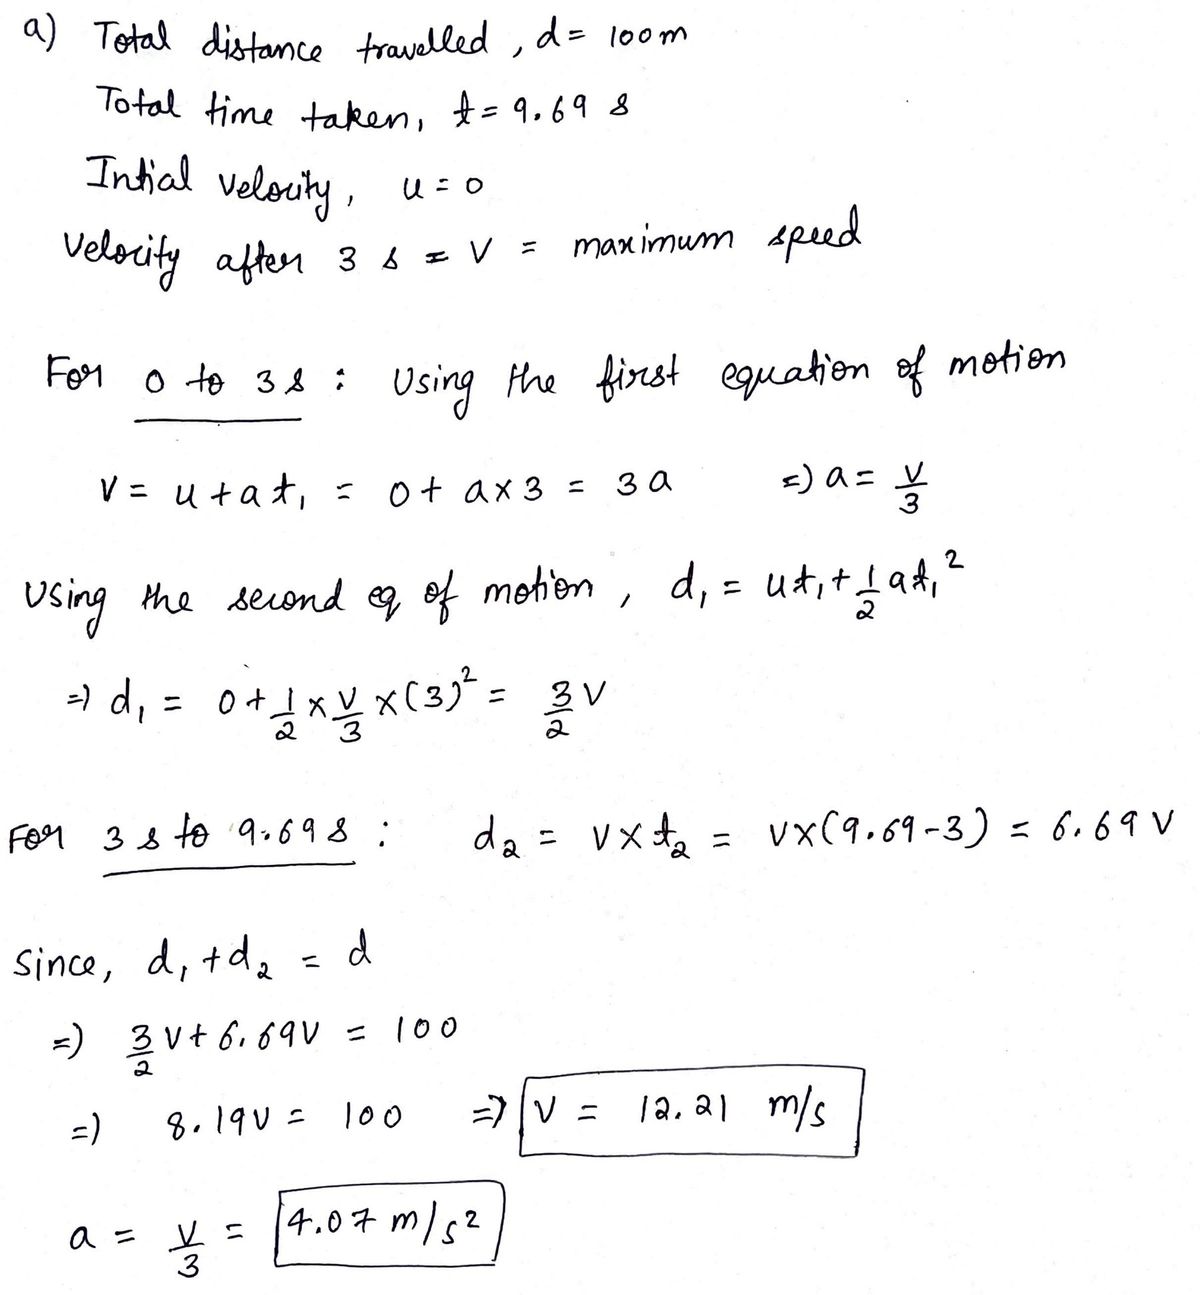 a) Total distance travelled, d = 100m
Total time taken, t = 9.69 s
Intial velocity, u = 0
Velocity after 3 s = V = maximum speed
For 0 to 3s : Using the first equation of motion
V = u + at₁ = 0 + a×3 = 3a ⇒ a = V/3
Using the second eq of motion, d₁ = ut₁ + 1/2 at₁²
⇒ d₁ = 0 + 1/2 × V/3 × (3)² = 3/2 V
For 3 s to 9.69 s : d₂ = V × t₂ = V×(9.69-3) = 6.69 V
Since, d₁ + d₂ = d
⇒ 3/2 V + 6.69V = 100
⇒ 8.19V = 100 ⇒ V = 12.21 m/s
a = V/3 = 4.07 m/s²